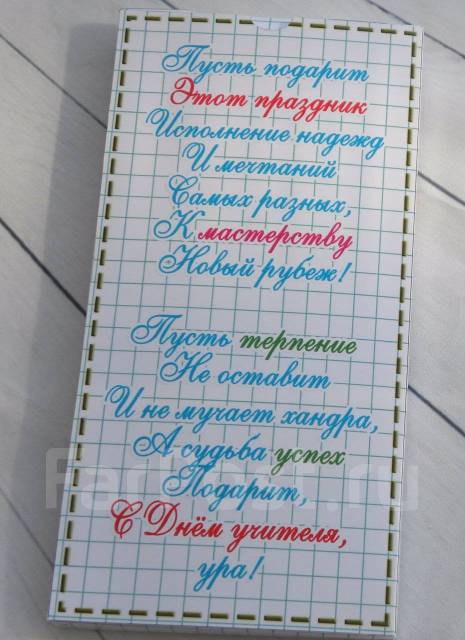 Пусть подарит
Этот праздник
Исполнение надежд
И мечтаний
Самых разных,
К мастерству
Новый рубеж!
Пусть терпение
Не оставит
И не мучает хандра,
А судьба успех
Подарит,
С Днём учителя,
ура!
Farpost.ru